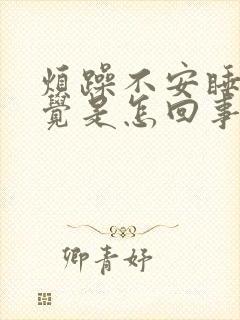 煩躁不安睡
覺是怎回事
卿青妤